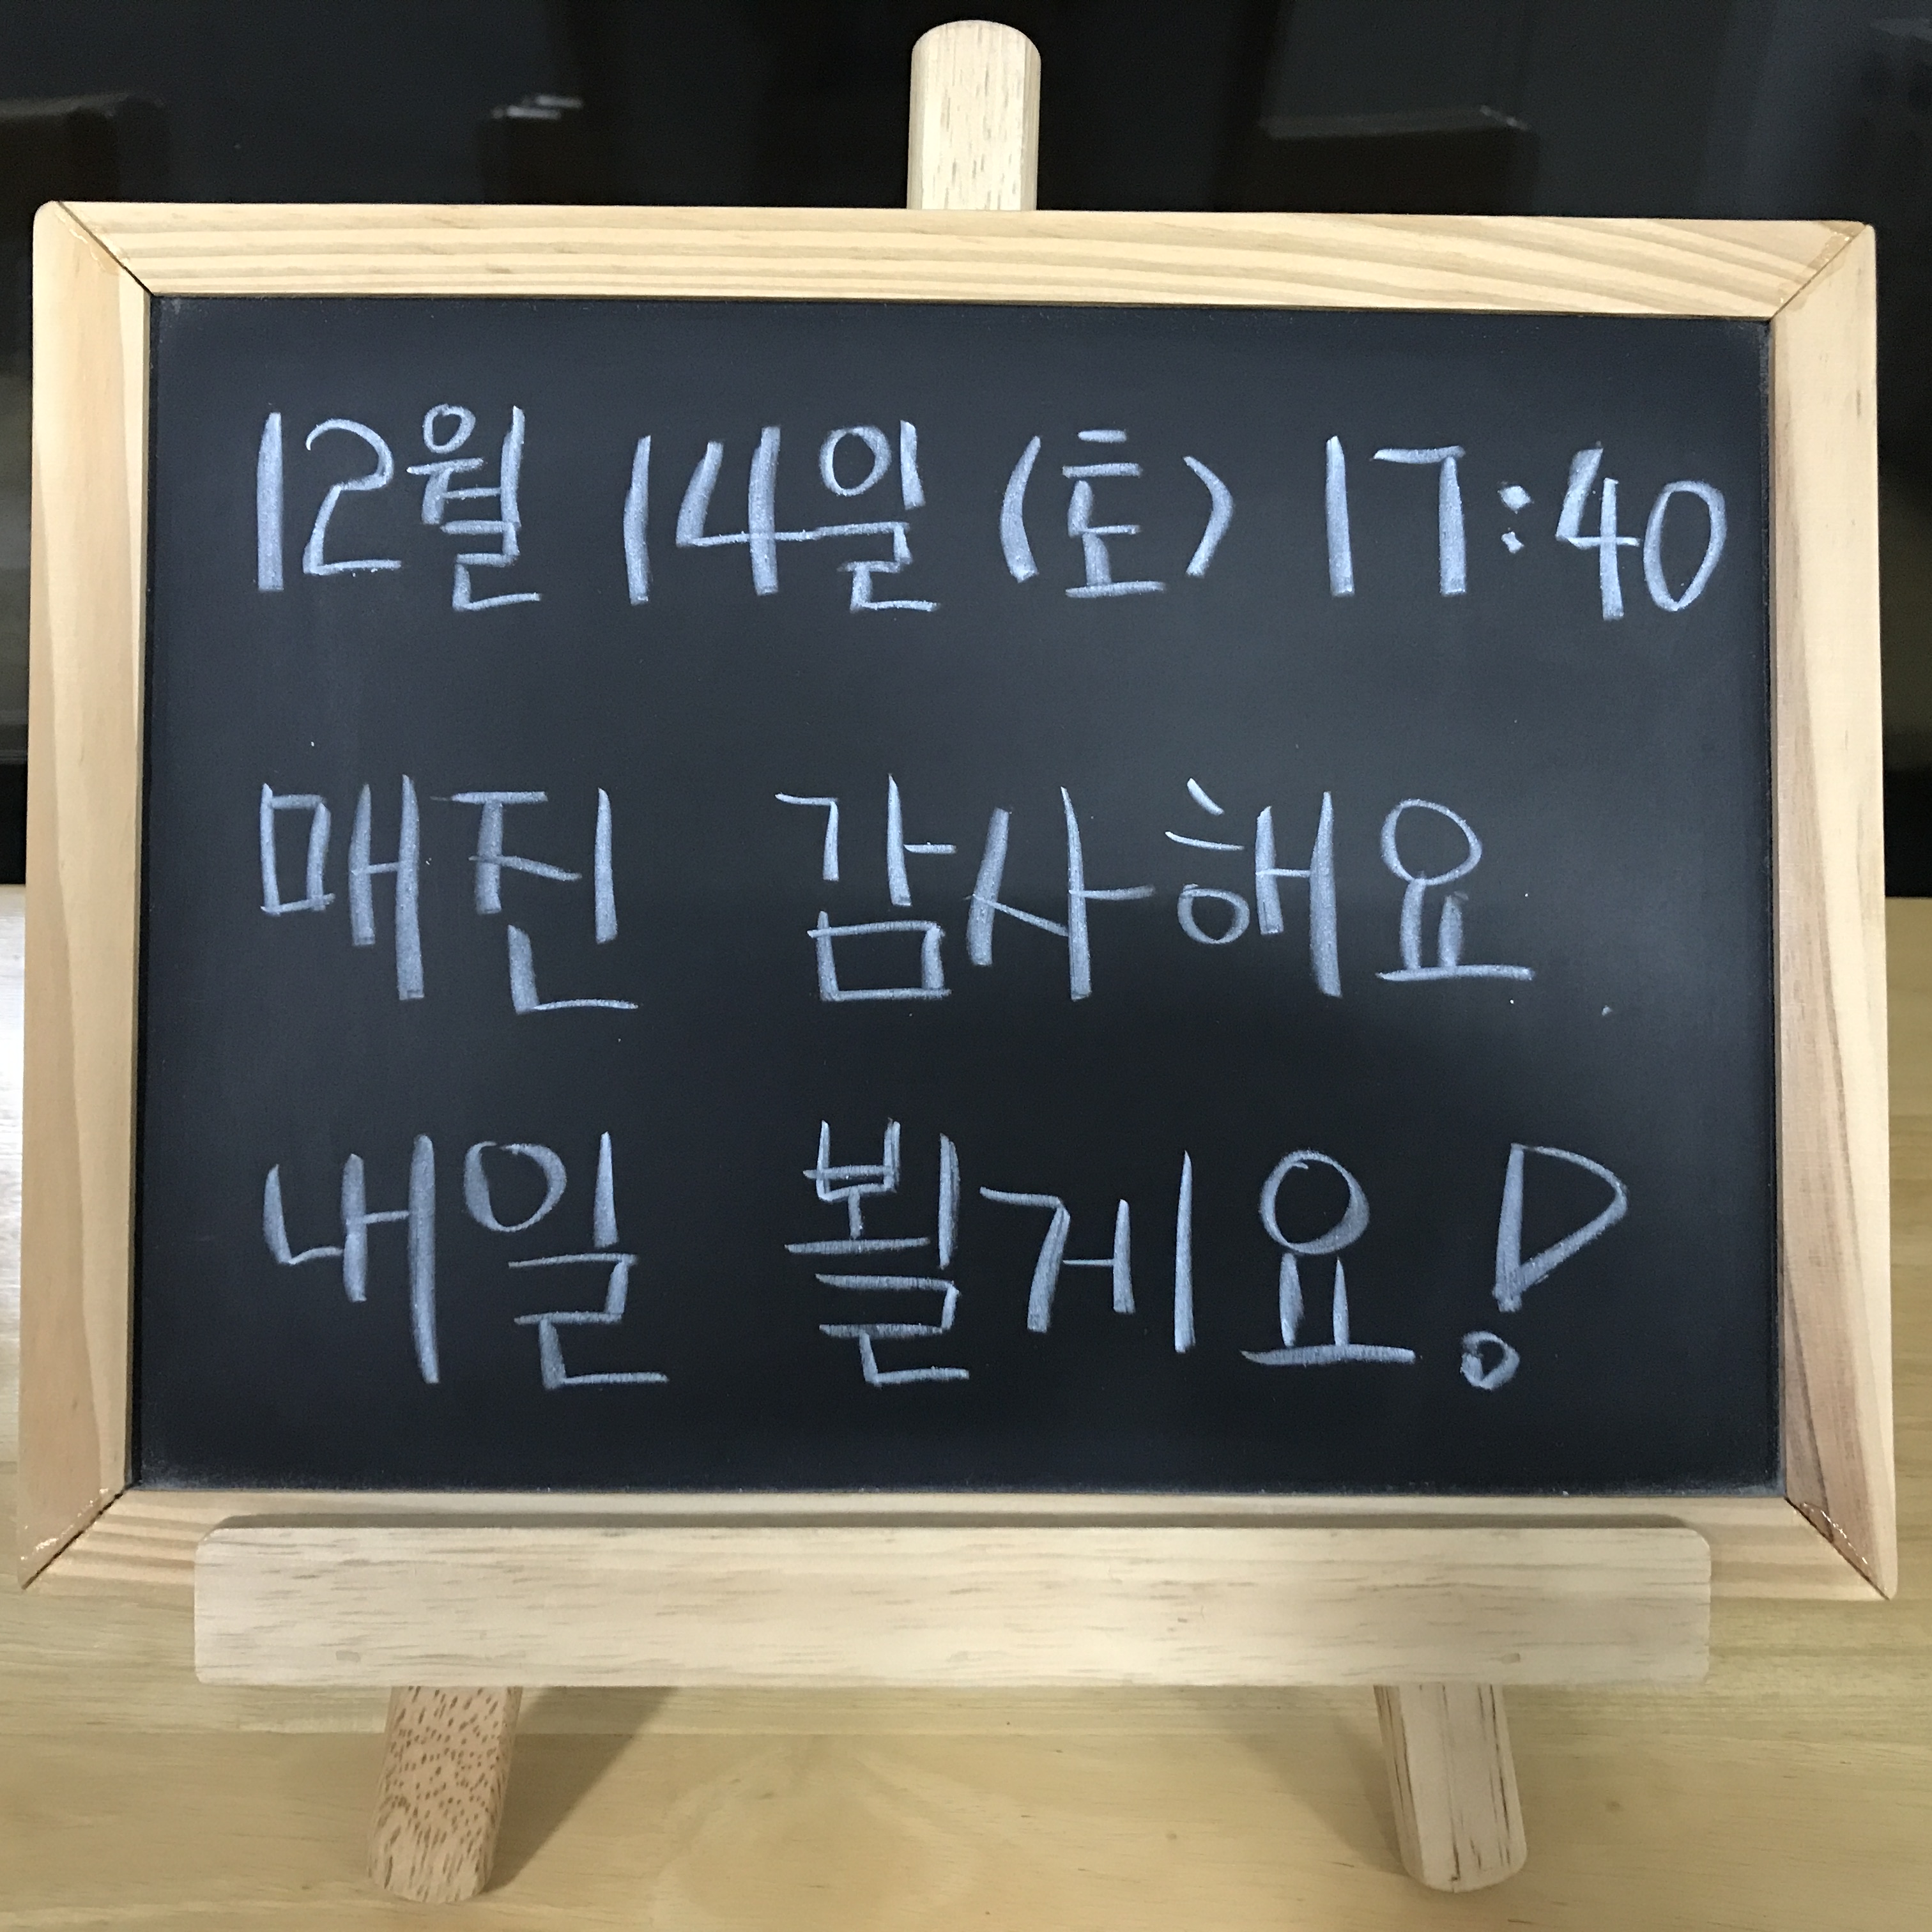 12월 14일 (토) 17:40
매진 감사해요
내일 뵐게요!